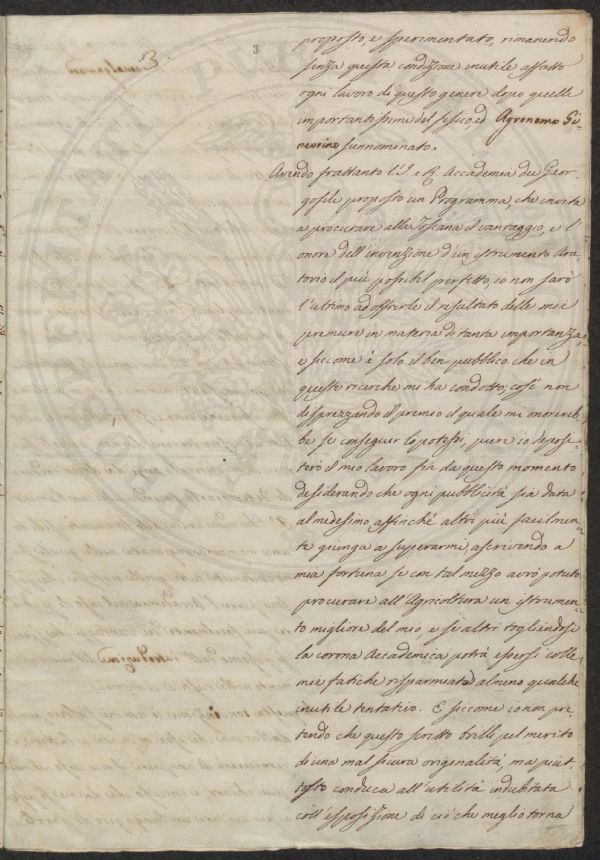 3
3
proposto, e sperimentato, rimanendo
senza questa condizione inutile affatto
ogni lavoro di questo genere dopo quelle
importantissime del fisico, ed Agronomo Gi-
nevrino sunnominato.
Avendo frattanto l'I. e R. Accademia dei Geor-
gofili proposto un Programma, che invita
a procurare alla Toscana il vantaggio, e l'
onore dell'invenzione d'un istrumento Ara-
torio il più possibil perfetto, io non sarò
l'ultimo ad offrirle il resultato delle mie
premure in materia di tanta importanza,
e siccome è solo il ben pubblico che in
queste ricerche mi ha condotto; così non
disprezzando il premio il quale mi onorereb-
be se conseguir lo potessi, pure io deposi-
terò il mio lavoro fin da questo momento
desiderando che ogni pubblicità sia data
al medesimo affinché altri più facilmen-
te giunga a superarmi, ascrivendo a
mia fortuna se con tal mezzo avrò potuto
procurare all'Agricoltura un istrumen-
to migliore del mio, e se altri togliendosi
la corona Accademica potrà essersi colle
mie fatiche risparmiato almeno qualche
inutile tentativo. E siccome io non pre-
tendo che questo scritto brilli pel merito
di una mal sicura originalità, ma piut-
tosto conduca all'utilità indubitata
coll'esposizione di ciò che meglio torna